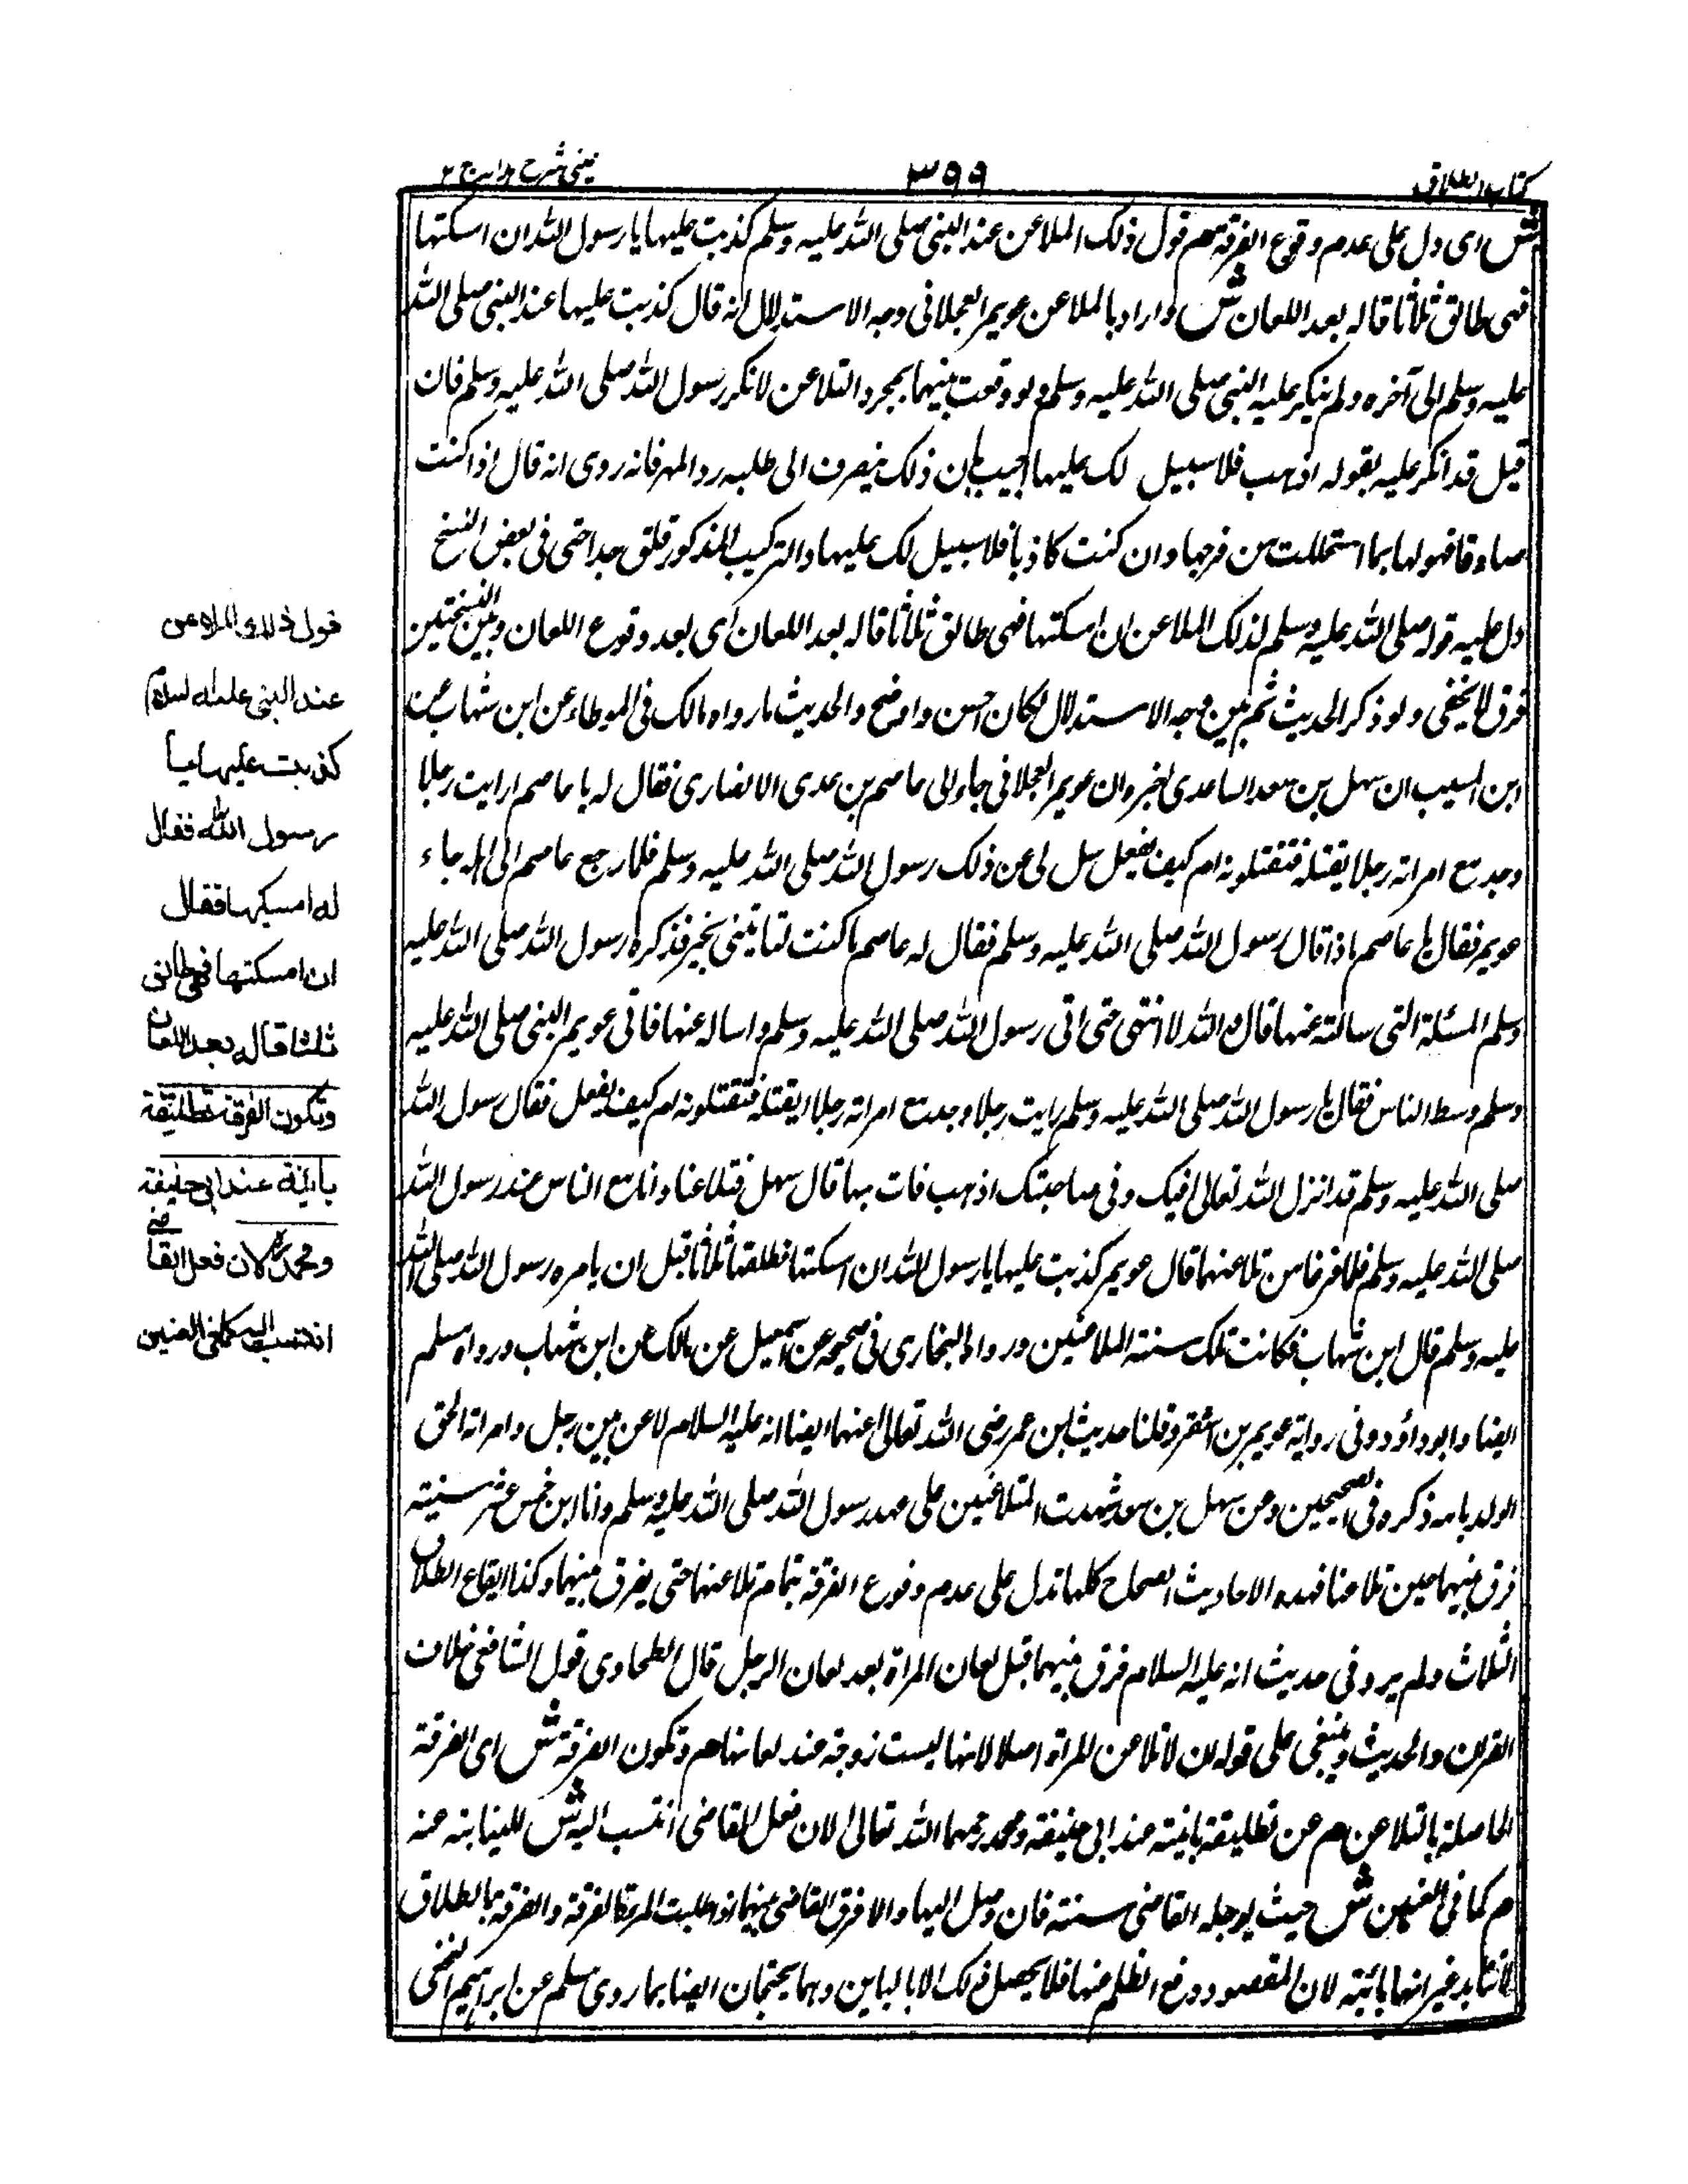 كتاب الطلاق
٣٩٩
عينى شرح هدايه ج ٢
ش اى دل على عدم وقوع الفرقة م قول ذلك الملاعن عند النبى صلى الله عليه وسلم كذبت عليها يا رسول الله ان امسكتها
فهى طالق ثلاثا قاله بعد اللعان ش واراد بالملاعن عويمر العجلانى وجه الاستدلال انه قال كذبت عليها عند النبى صلى الله
عليه وسلم الى آخره ولم ينكر عليه النبى صلى الله عليه وسلم ولو وقعت بينهما بمجرد التلاعن لانكر رسول الله صلى الله عليه وسلم فان
قيل قد انكر عليه بقوله اذهب فلا سبيل لك عليها اجيب بان ذلك ينصرف الى طلبه رد المهر فانه روى انه قال اذا كنت
صادقا فهو لها بما استحللت من فرجها وان كنت كاذبا فلا سبيل لك عليها والتركيب المذكور قلق جدا حتى فى بعض النسخ
دل عليه قوله صلى الله عليه وسلم لذلك الملاعن ان امسكتها فهى طالق ثلاثا قاله بعد اللعان اى بعد وقوع اللعان وبين النسختين
فرق لا يخفى ولو ذكر الحديث ثم بين وجه الاستدلال لكان احسن واوضح والحديث ما رواه مالك فى الموطاء عن ابن شهاب عن
ابن المسيب ان سهل بن سعد الساعدى اخبره ان عويمر العجلانى جاء الى عاصم بن عدى الانصارى فقال له يا عاصم ارايت رجلا
وجد مع امراته رجلا يقتله فتقتلونه ام كيف يفعل سل لى عن ذلك رسول الله صلى الله عليه وسلم فلما رجع عاصم الى اهله جاء
عويمر فقال يا عاصم ماذا قال رسول الله صلى الله عليه وسلم فقال له عاصم ما كنت لتاتينى بخير قد كره رسول الله صلى الله عليه
وسلم المسئلة التى سالته عنها قال والله لا انتهى حتى اتى رسول الله صلى الله عليه وسلم واساله عنها فاتى عويمر النبى صلى الله عليه
وسلم وسط الناس فقال يا رسول الله صلى الله عليه وسلم رايت رجلا وجد مع امراته رجلا ايقتله فتقتلونه ام كيف يفعل فقال رسول الله
صلى الله عليه وسلم قد انزل الله تعالى فيك وفى صاحبتك اذهب فات بها قال سهل فتلاعنا وانا مع الناس عند رسول الله
صلى الله عليه وسلم فلما فرغا من تلاعنهما قال عويمر كذبت عليها يا رسول الله ان امسكتها فطلقها ثلاثا قبل ان يامره رسول الله صلى الله
عليه وسلم قال ابن شهاب فكانت تلك سنة المتلاعنين ورواه البخارى فى صحيحه عن اسمعيل عن مالك عن ابن شهاب ورواه مسلم
ايضا وابو داؤد وفى رواية عويمر بن اشقر وقلنا حديث ابن عمر رضى الله تعالى عنهما ايضا انه عليه السلام لاعن بين رجل وامراته الحق
الولد بامه ذكره فى الصحيحين وعن سهل بن سعد شهدت المتلاعنين على عهد رسول الله صلى الله عليه وسلم وانا ابن خمس عشر سنة
فرق بينهما حين تلاعنا فهذه الاحاديث الصحاح كلها تدل على عدم وقوع الفرقة بتمام تلاعنهما حتى يفرق بينهما وكذا ايقاع الطلاق
الثلاث ولم يرو فى حديث انه عليه السلام فرق بينهما قبل لعان المراة بعد لعان الرجل قال الطحاوى قول الشافعى خلاف
القران والحديث وينبغى على قوله ان لا تلاعن المراة اصلا لانها ليست زوجة عند لعانها م وتكون الفرقة ش اى الفرقة
الحاصلة بالتلاعن م عن تطليقة بائنة عند ابى حنيفة ومحمد رحمهما الله تعالى لان فعل القاضى انتسب اليه ش للنيابته عنه
م كما فى العنين ش حيث يؤجله القاضى سنة فان وصل اليها والا فرق القاضى بينهما اذا طلبت المراة الفرقة والفرقة بالطلاق
لا تتابد غير انها بائنة لان المقصود دفع الظلم عنها فلا يحصل ذلك الا بالباين وهما يحتجان ايضا بما روى مسلم عن ابراهيم النخعى
قول ذلك الملاعن
عند النبى عليه السلام
كذبت عليها يا
رسول الله فقال
له امسكها فقال
ان امسكتها فهى طالق
ثلثا قاله بعد اللعان
وتكون الفرقة تطليقة
بائنة عند ابى حنيفة
ومحمد رح لان فعل القاضى
انتسب اليه كما فى العنين